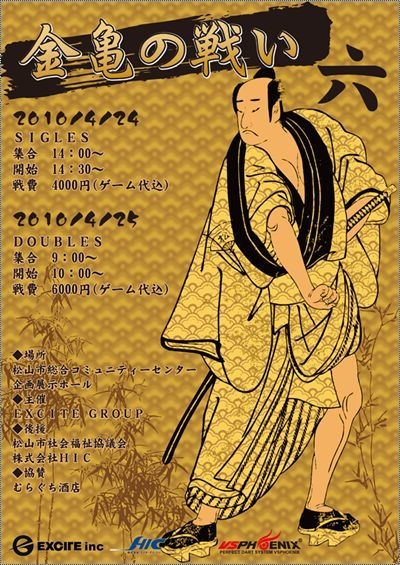 金亀の戦い
六
2010/4/24
SIGLES
集合 14:00～
開始 14:30～
戦費 4000円(ゲーム代込)
2010/4/25
DOUBLES
集合 9:00～
開始 10:00～
戦費 6000円(ゲーム代込)
◆場所
松山市総合コミュニティーセンター
企画展示ホール
◆主催
EXCITE GROUP
◆後援
松山市社会福祉協議会
株式会社HIC
◆協賛
むらぐち酒店
EXCITE inc
HIC
VSPHOENIX
PERFECT DART SYSTEM VSPHOENIX